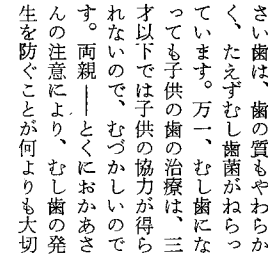 さい歯は、歯の質もやわらか
く、たえずむし歯菌がねらっ
ています。万一、むし歯にな
っても子供の歯の治療は、三
才以下では子供の協力が得ら
れないので、むづかしいので
す。両親――とくにおかあさ
んの注意により、むし歯の発
生を防ぐことが何よりも大切